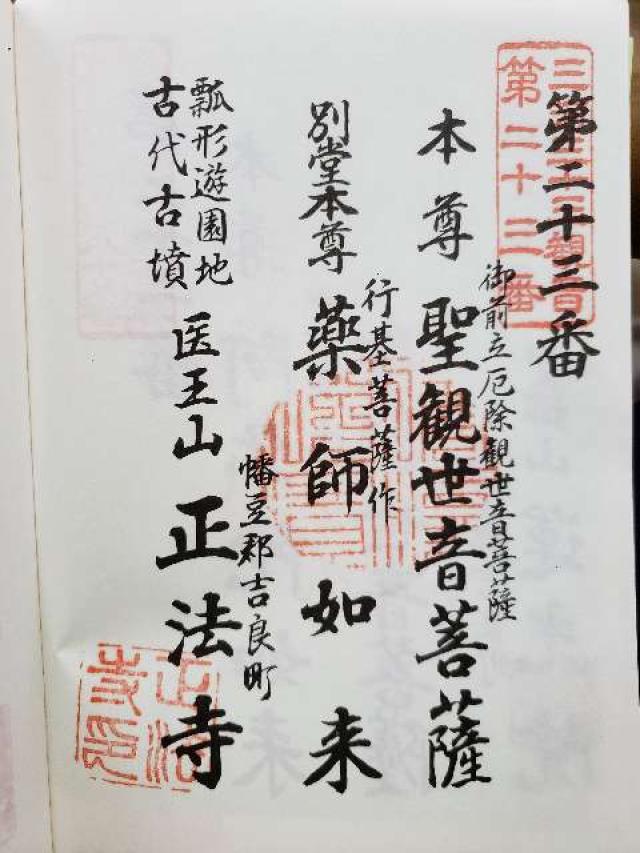 第二十三番
御前立厄除観世音菩薩
本尊 聖観世音菩薩
行基菩薩作
別堂本尊 薬師如来
幡豆郡吉良町
瓢形遊園地
古代古墳
医王山 正法寺
第二十三番
正法寺印